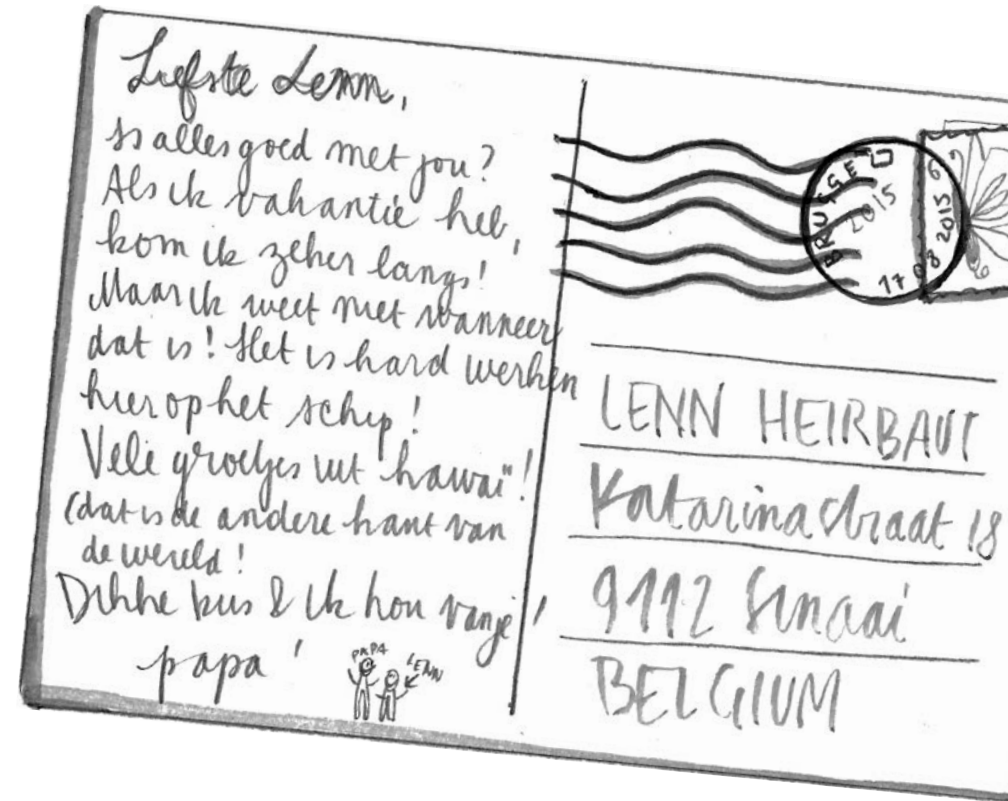 Liefste Lenn,
Is alles goed met jou?
Als ik vakantie heb,
kom ik zeker langs!
Maar ik weet niet wanneer
dat is! Het is hard werken
hier op het schip!
Vele groetjes uit "hawaï"!
(dat is de andere kant van
de wereld!
Dikke kus & ik hou van je!
papa!
PAPA
LENN
BRUGGE
2015
17 08 2015
LENN HEIRBAUT
Katarinastraat 18
9112 Sinaai
BELGIUM